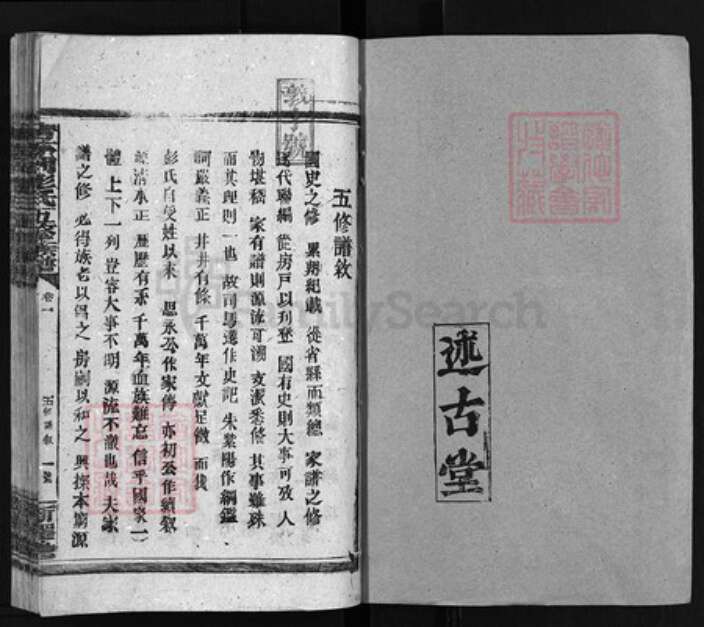 述古堂
五修譜敘
國史之修 累朝紀載 從省縣而類總 家譜之修
代聯編 從房戶以刊登 國有史則大事可攷 人
物堪稽 家有譜則源流可溯 支派悉脩 其事雖殊
而其理則一也 故司馬遷作史記 朱紫陽作綱鑑
詞嚴義正 井井有條 千萬年文獻足徵 而我
彭氏自受姓以來 思永公作家傳 亦初公作續敘
源清水正 歷歷有承 千萬年血族難忘 信乎國家一
體 上下一列 豈容大事不明 源流不徵也哉 夫家
譜之修 必得族老以倡之 房嗣以和之 興探本窮源
卷一
五修譜敘
一號
FamilySearch